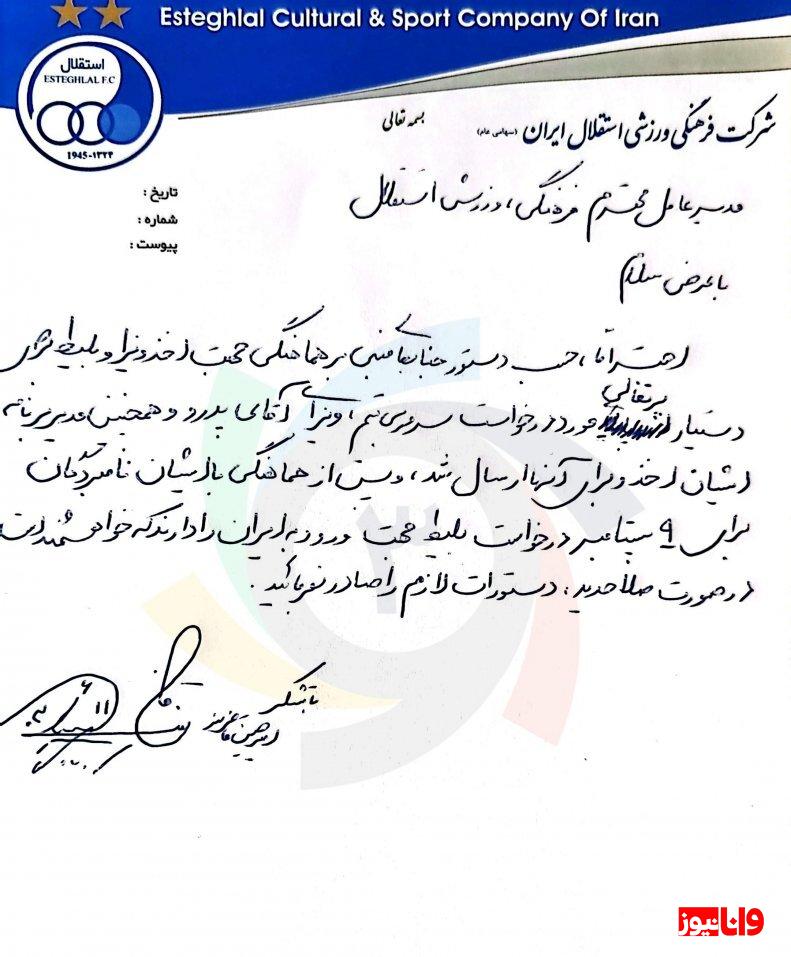 Esteghlal Cultural & Sport Company Of Iran
استقلال
ESTEGHLAL F.C
1945-۱۳۲۴
بسمه تعالی
شرکت فرهنگی ورزشی استقلال ایران (سهامی عام)
تاریخ :
شماره :
پیوست :
مدیر عامل محترم فرهنگی، ورزشی استقلال
با عرض سلام
احتراماً، حسب دستور جنابعالی مبنی بر هماهنگی جهت اخذ ویزا و بلیط برای
دستیار پرتغالی مورد درخواست سرمربی تیم، ویزای آقای پدرو و همچنین مدیر برنامه
ایشان اخذ و برای آنها ارسال شد، و پس از هماهنگی با ایشان نامبردگان
برای ۹ سپتامبر درخواست بلیط جهت ورود به ایران را دارند که خواهشمند است
در صورت صلاحدید، دستورات لازم را صادر بفرمائید.
با تشکر
۳
وانانیوز